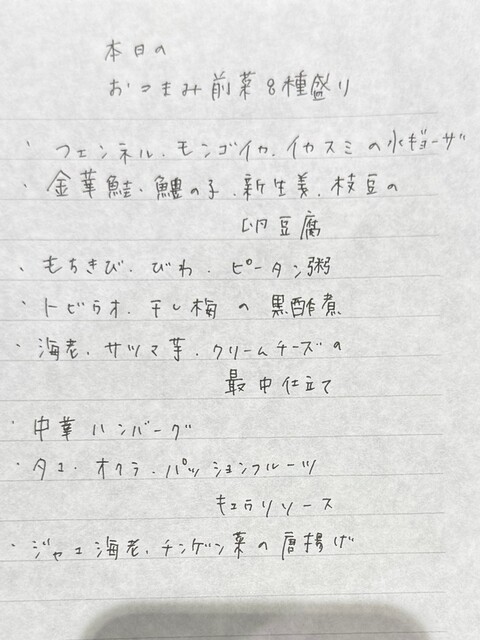 本日の
おつまみ前菜8種盛り
・フェンネル、モンゴイカ、イカスミの水ギョーザ
・金華鮭、鱧の子、新生姜、枝豆の
卵豆腐
・もちきび、びわ、ピータン粥
・トビウオ、干し梅の黒酢煮
・海老、サツマ芋、クリームチーズの
最中仕立て
・中華ハンバーグ
・タコ、オクラ、パッションフルーツ
キュウリソース
・ジャコ海老、チンゲン菜の唐揚げ